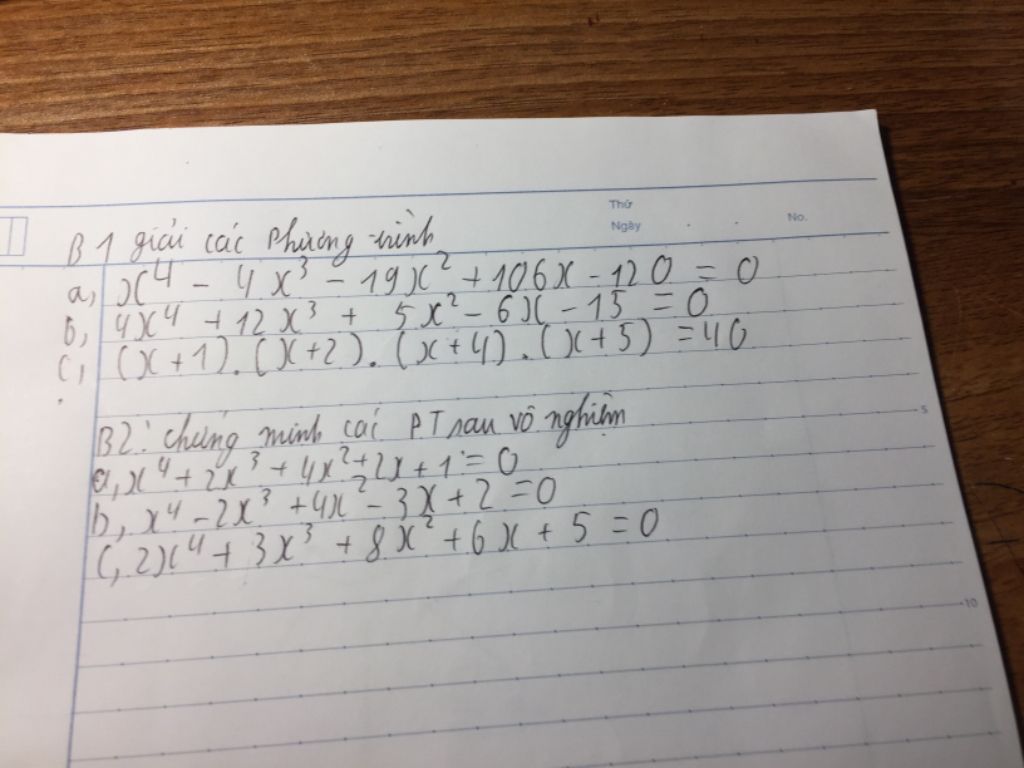 Thứ
Ngày
No.
B1 giải các phương trình
a, x⁴ - 4x³ - 19x² + 106x - 120 = 0
b, 4x⁴ + 12x³ + 5x² - 6x - 15 = 0
c, (x+1).(x+2).(x+4).(x+5) = 40
B2: chứng minh các PT sau vô nghiệm
5
a, x⁴ + 2x³ + 4x² + 2x + 1 = 0
b, x⁴ - 2x³ + 4x² - 3x + 2 = 0
c, 2x⁴ + 3x³ + 8x² + 6x + 5 = 0
10